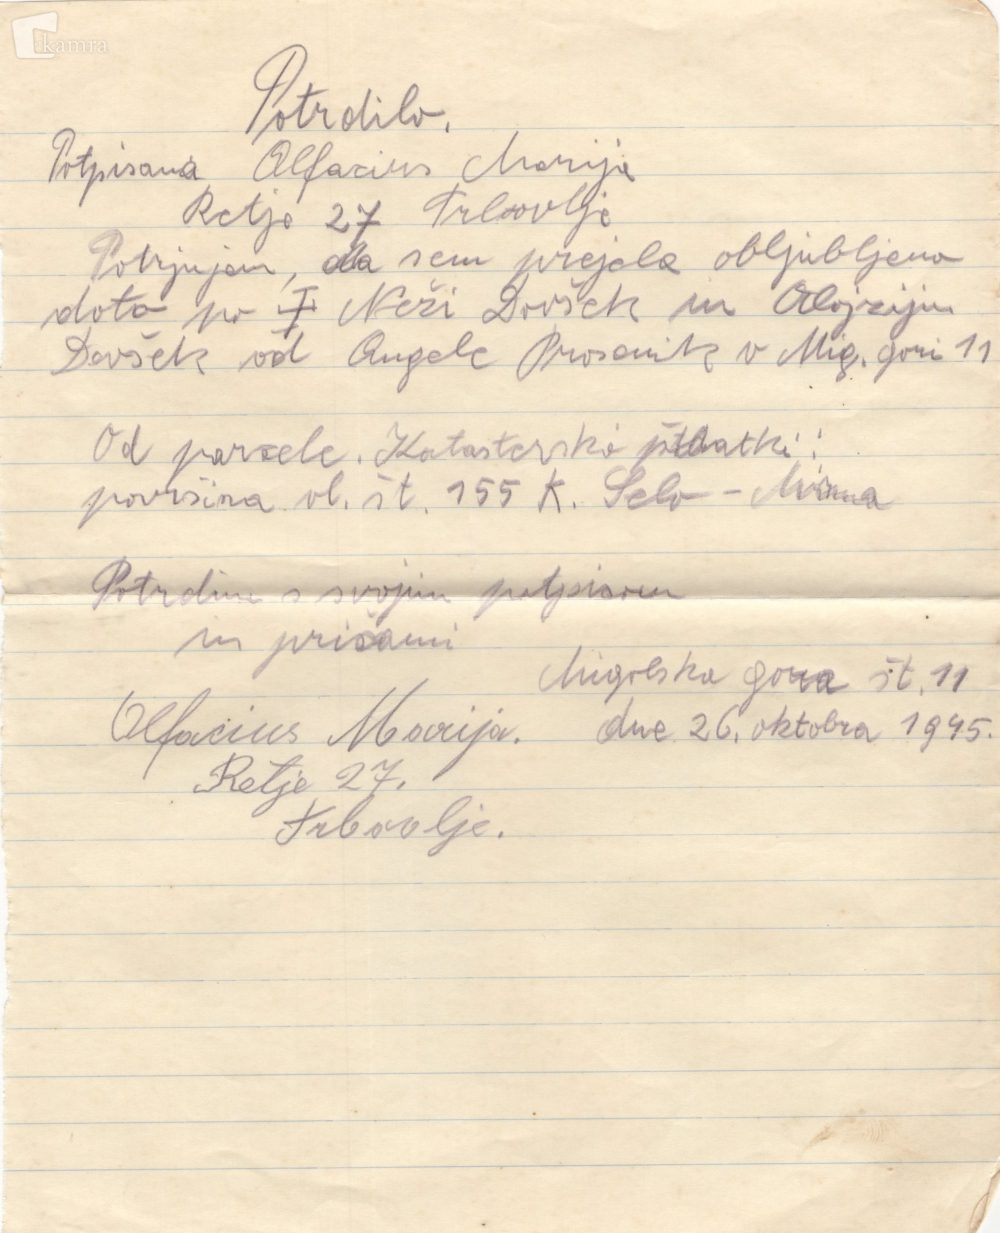 kamra
Potrdilo.
Potpisana Olfacius Marija
Retje 27 Trbovlje
Potrjujem, da sem prejela obljubljeno
doto po Neži Dovšek in Alojziju
Dovšek od Angele Prosenik v Mig. gori 11
Od parcele. Katasterski
površina vl. št. 155 K. Selo - Mirna
Potrdim s svojim potpisom
in pričami
Migolska gora št. 11
Olfacius Marija. dne 26. oktobra 1945.
Retje 27.
Trbovlje.